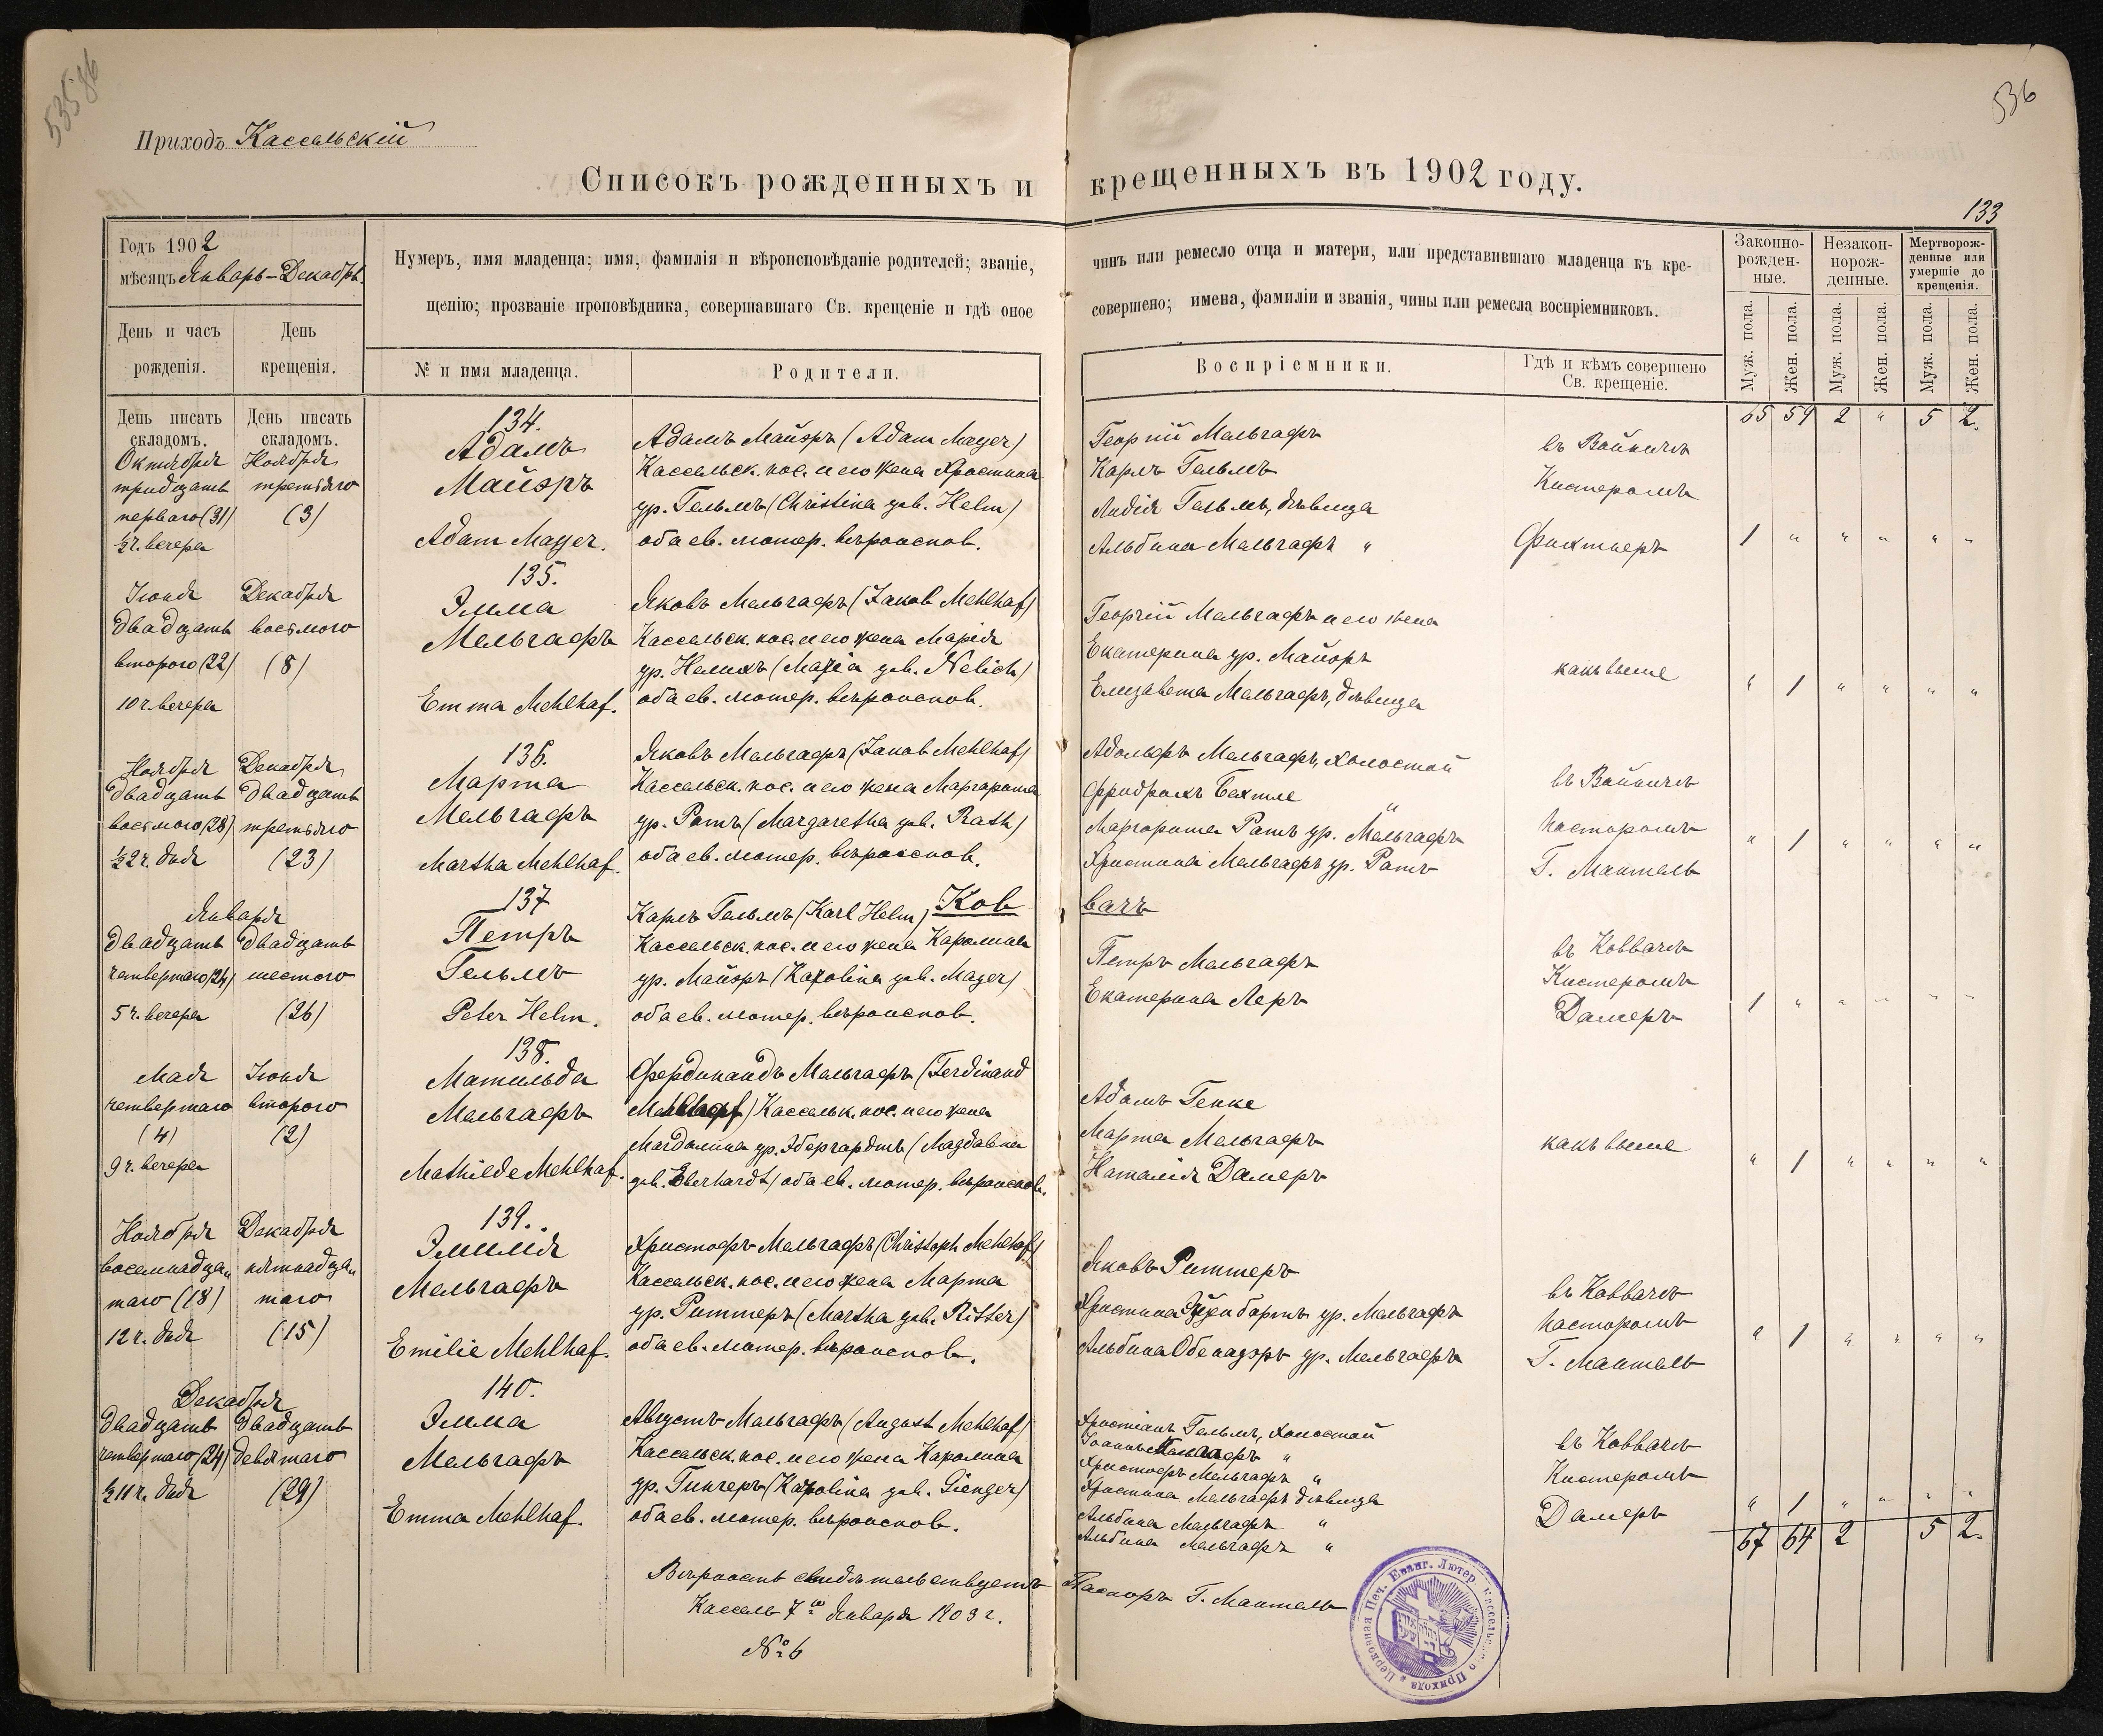 535 об
536
Приходъ Кассельскій
Списокъ рожденныхъ и крещенныхъ въ 1902 году.
133
Годъ 1902
мѣсяцъ Январь–Декабрь.
Нумеръ, имя младенца; имя, фамилія и вѣроисповѣданіе родителей; званіе, чинъ или ремесло отца и матери, или представившаго младенца къ кре-
щенію; прозваніе проповѣдника, совершавшаго Св. крещеніе и гдѣ оное совершено; имена, фамиліи и званія, чины или ремесла воспріемниковъ.
Законно-
рожден-
ные.
Незакон-
норож-
денные.
Мертворож-
денные или
умершіе до
крещенія.
День и часъ
рожденія.
День
крещенія.
№ и имя младенца.
Родители.
Воспріемники.
Гдѣ и кѣмъ совершено
Св. крещеніе.
Муж. пола.
Жен. пола.
Муж. пола.
Жен. пола.
Муж. пола.
Жен. пола.
День писать
складомъ.
День писать
складомъ.
65 59 2 " 5 2.
Октября
тридцать
перваго (31)
½2 ч. вечера
Ноября
третьяго
(3)
134.
Адамъ
Майэръ
Adam Mayer.
Адамъ Майэръ (Adam Mayer)
Кассельск. пос. и его жена Христина
ур. Гельмъ (Christina geb. Helm)
оба ев. лютер. вѣроиспов.
Георгій Мельгафъ
Карлъ Гельмъ
Лидія Гельмъ, дѣвица
Альбина Мельгафъ "
въ
Кистеромъ
Фихтнеръ
1 " " " " "
Іюня
двадцать
второго (22)
10 ч. вечера
Декабря
восьмого
(8)
135.
Эмма
Мельгафъ
Emma Mehlhaf.
Яковъ Мельгафъ (Jakob Mehlhaf)
Кассельск. пос. и его жена Марія
ур. Нелихъ (Maria geb. Nelich)
оба ев. лютер. вѣроиспов.
Георгій Мельгафъ и его жена
Екатерина ур. Майэръ
Елизавета Мельгафъ, дѣвица
какъ выше
" 1 " " " "
Ноября
двадцать
восьмого (28)
½2 ч. дня
Декабря
двадцать
третьяго
(23)
136.
Марта
Мельгафъ
Martha Mehlhaf.
Яковъ Мельгафъ (Jakob Mehlhaf)
Кассельск. пос. и его жена Маргарета
ур. Ратъ (Margaretha geb. Rath)
оба ев. лютер. вѣроиспов.
Адольфъ Мельгафъ, холостой
Фридрихъ Бехтле "
Маргарета Ратъ ур. Мельгафъ
Христина Мельгафъ ур. Ратъ
въ
пасторомъ
Г. Мантель
" 1 " " " "
Января
двадцать
четвертаго (24)
5 ч. вечера
двадцать
шестого
(26)
137
Петръ
Гельмъ
Peter Helm.
Коввачъ
Карлъ Гельмъ (Karl Helm)
Кассельск. пос. и его жена Каролина
ур. Майэръ (Karolina geb. Mayer)
оба ев. лютер. вѣроиспов.
Петръ Мельгафъ
Екатерина Леръ
въ Коввачъ
Кистеромъ
Дамеръ
1 " " " " "
Мая
четвертаго
(4)
9 ч. вечера
Іюня
второго
(2)
138.
Матильда
Мельгафъ
Mathilde Mehlhaf.
Фердинандъ Мельгафъ (Ferdinand
Mehlhaf) Кассельск. пос. и его жена
Магдалина ур. Эбергардтъ (Magdalena
geb. Eberhardt) оба ев. лютер. вѣроиспов.
Адамъ Генке
Марта Мельгафъ
Наталія Дамеръ
какъ выше
" 1 " " " "
Ноября
восемнадца
таго (18)
12 ч. дня
Декабря
пятнадца
таго
(15)
139.
Эмилія
Мельгафъ
Emilie Mehlhaf.
Христофъ Мельгафъ (Christoph Mehlhaf)
Кассельск. пос. и его жена Марта
ур. Риттеръ (Martha geb. Ritter)
оба ев. лютер. вѣроиспов.
Яковъ Риттеръ
Христина ур. Мельгафъ
Альбина ур. Мельгафъ
въ Коввачъ
пасторомъ
Г. Мантель
" 1 " " " "
Декабря
двадцать
четвертаго (24)
½11 ч. дня
двадцать
девятаго
(29)
140.
Эмма
Мельгафъ
Emma Mehlhaf.
Августъ Мельгафъ (August Mehlhaf)
Кассельск. пос. и его жена Каролина
ур. Гингеръ (Karolina geb. Gienger)
оба ев. лютер. вѣроиспов.
Христіанъ Гельмъ, холостой
Іоаннъ Мельгафъ "
Христофъ Мельгафъ "
Христина Мельгафъ дѣвица
Альбина Мельгафъ "
Альбина Мельгафъ "
въ Коввачъ
Кистеромъ
Дамеръ
" 1 " " " "
67 64 2 5 2.
Вѣрность свидѣтельствуетъ Пасторъ Г. Мантель
Кассель 7го Января 1903 г.
№ 6
Церковная Печ. Еванг. Лютер. Кассельскаго Прихода